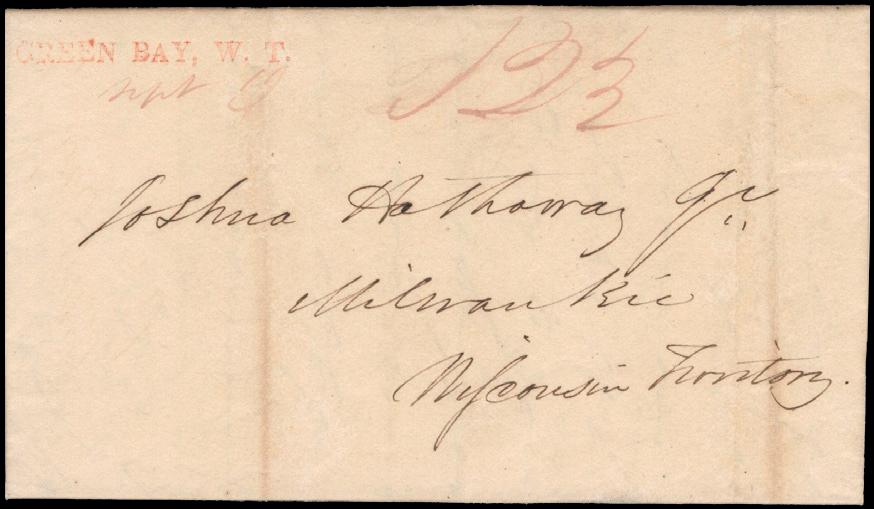 GREEN BAY, W. T.
Sept 9
12½
Joshua Hathaway Jr.
Milwaukie
Wisconsin Territory.